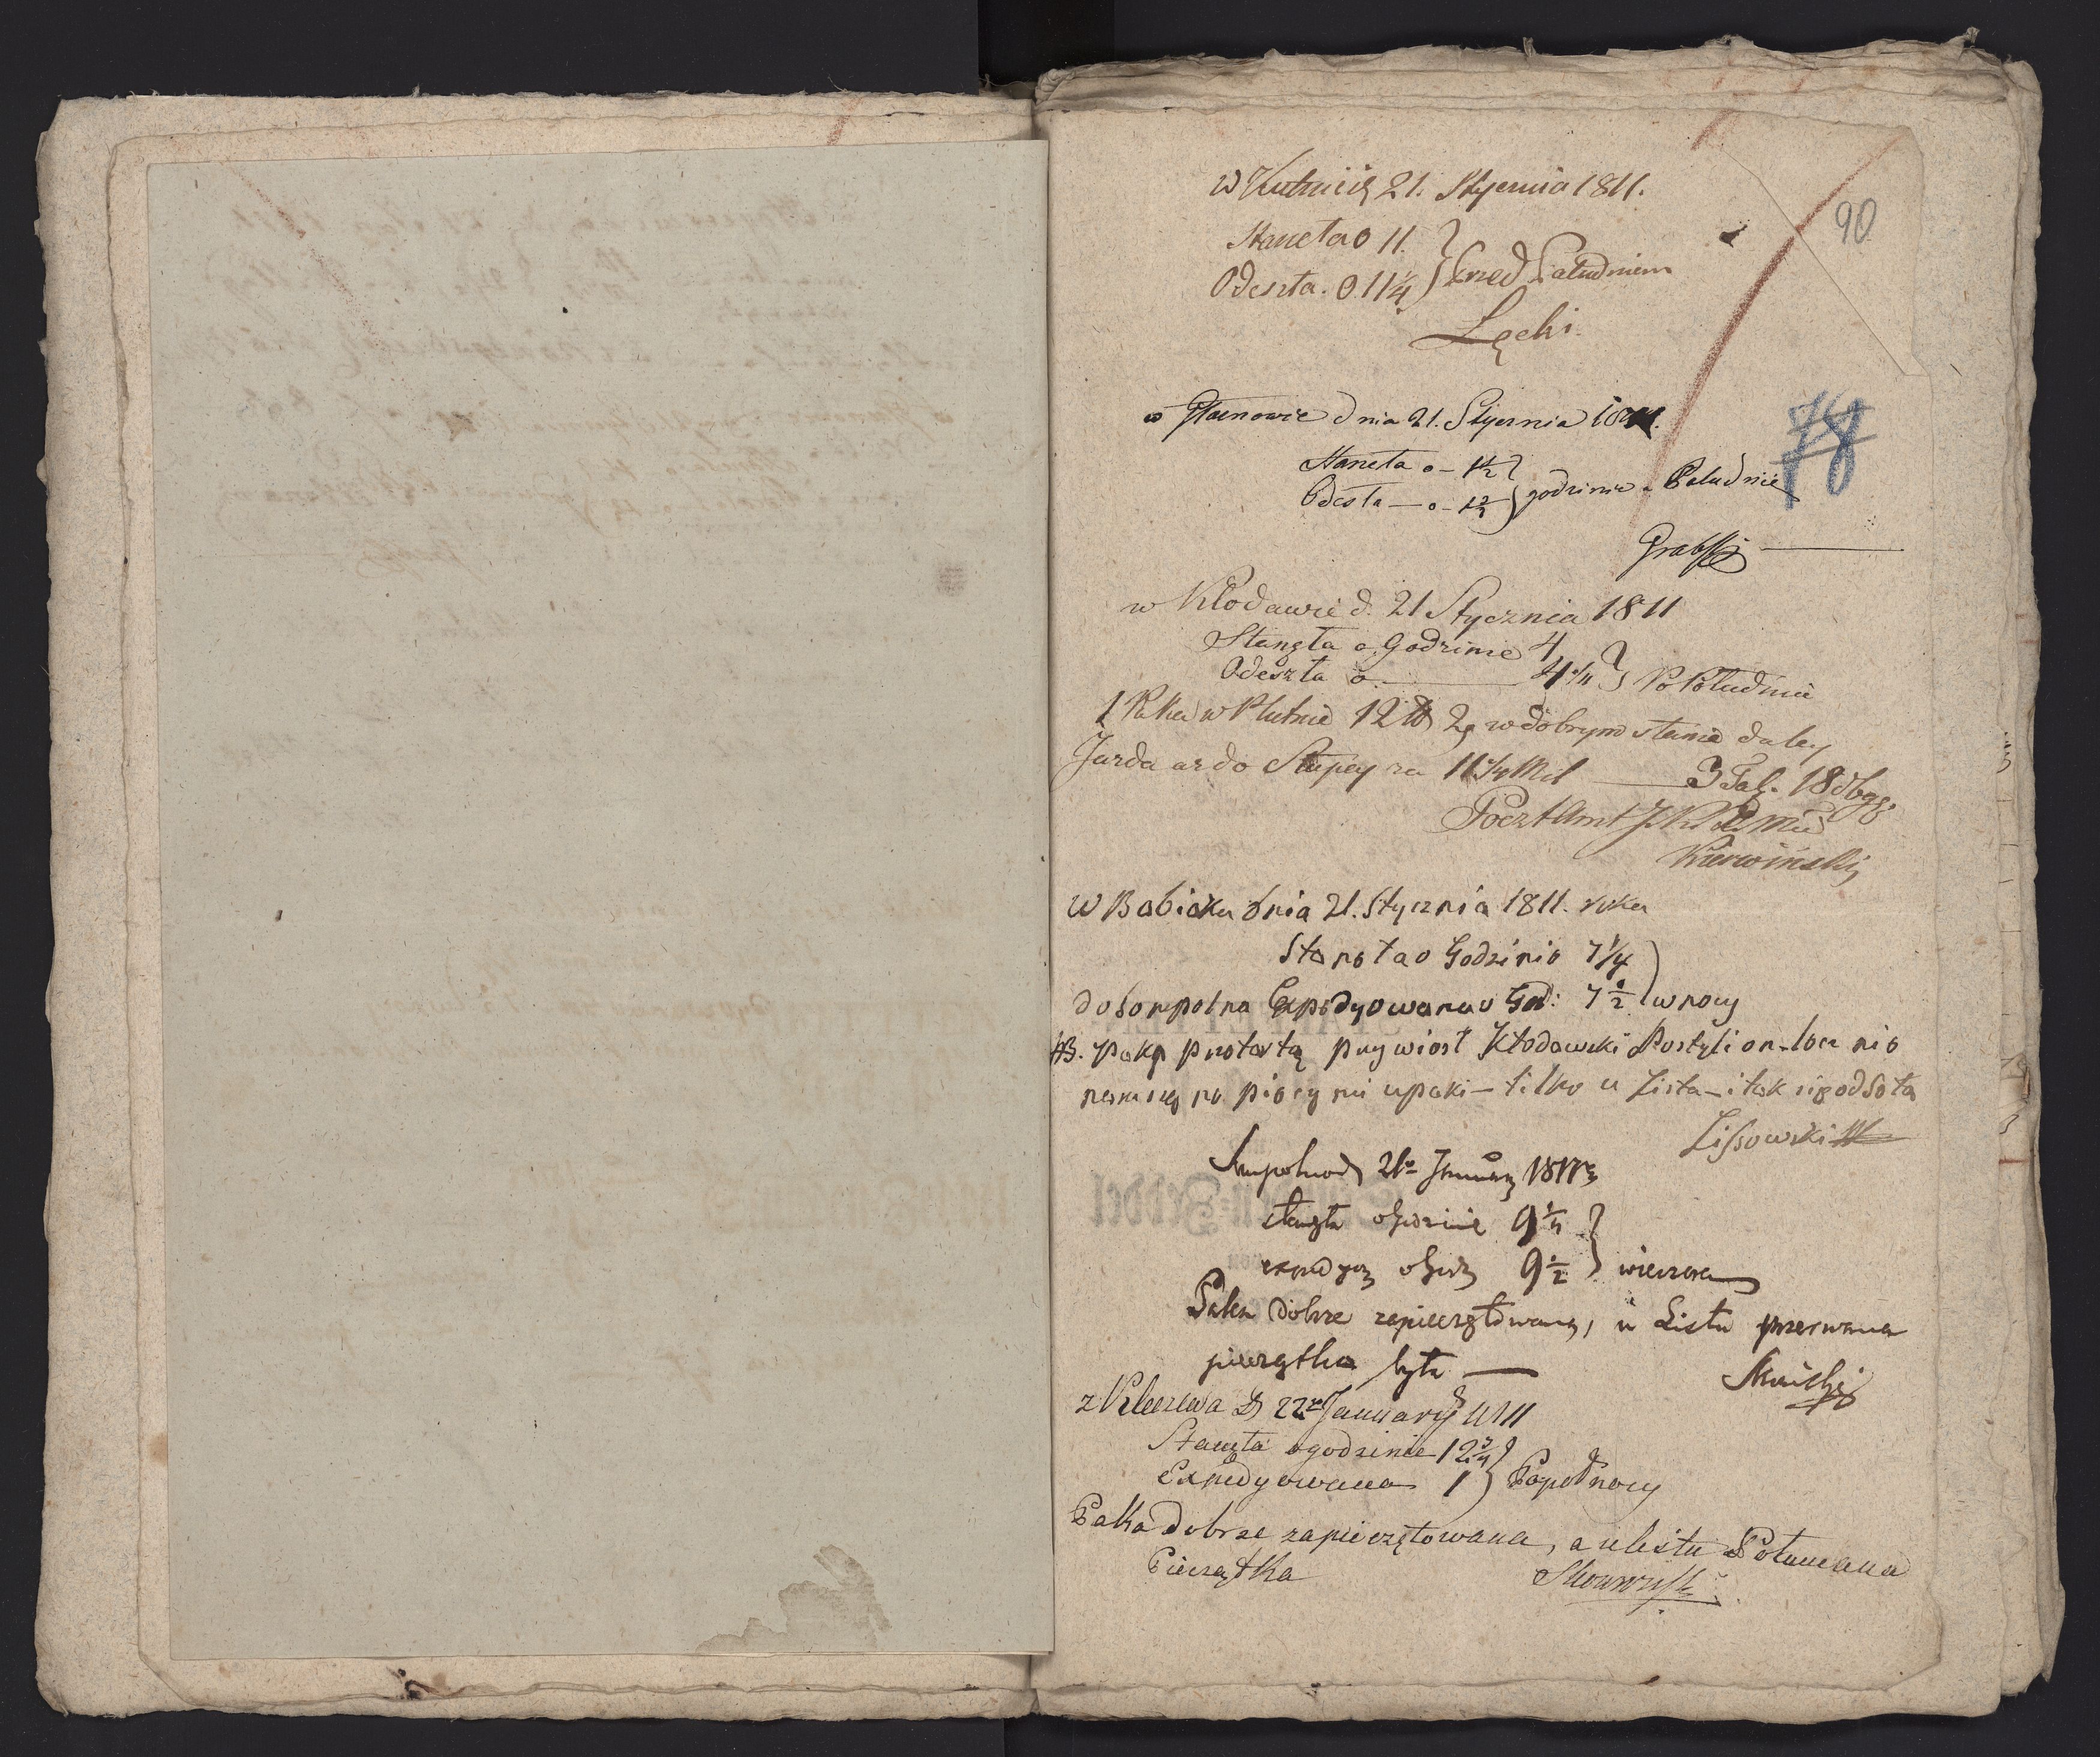 90
w Kutnie 21. Stycznia 1811.
Staneła o 11.
Odeszła. o 11 1/4 } Przed Południem
Łęcki.
78
w dnia 21. Stycznia
Staneła o - 1 1/2
Odesła — o - } godzinie Południe
Grabski
w Kłodawie d. 21 Stycznia 1811
Stanęła o Godzinie 4
Odeszła o — 4 1/4 } Po Południu
1 Paka w Płutnie 12 w dobrym stanie daley
Jazda az do Słupcy za 11 3/4 Mil — 3 Tal. 18 dbgg.
PocztAmt
Krzewiński
W Babiaku dnia 21. Stycznia 1811. roku
Stanęła o Godzinie 7 1/4
do Sompolna Expedyowana o God: 7 1/2 } w nocy
NB. Pakę protartą przywiozł Kłodawski Postylion - lecz nie
na pieczęci u paki - tilko u Lista - i tak się odesła
Lissowski
d 21° January 1811
stanęła o godzinie 9 1/4
o godz 9 1/2 } wieczora
Paka dobrze zapieczętowana, u Listu przerwana
pieczątka była —
z Kleczewa D 22 January 1811
Stanęła o godzinie 12 3/4
Expedyowana 1 } Popołnocy
Paka dobrze zapieczętowana, a u listu Połamana
Pieczątka